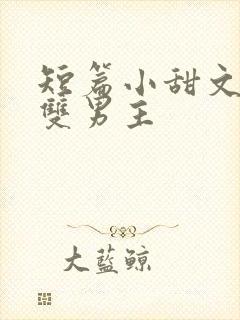 短篇小甜文
雙男主
大藍鲸